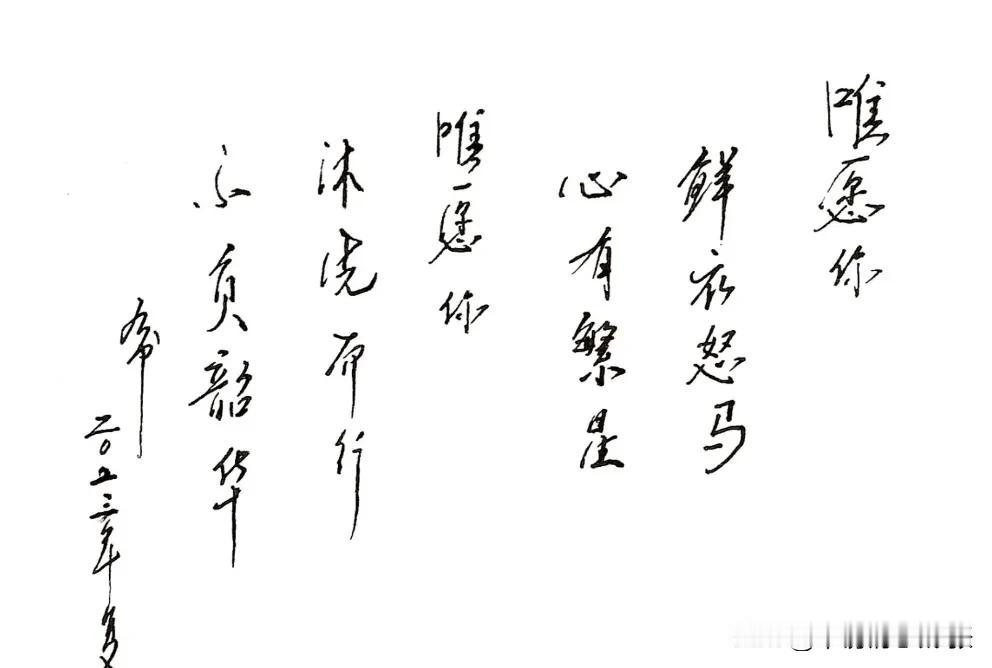 唯愿你
鲜衣怒马
心有繁星
唯愿你
沐晓而行
不负韶华
希
二〇二三年夏